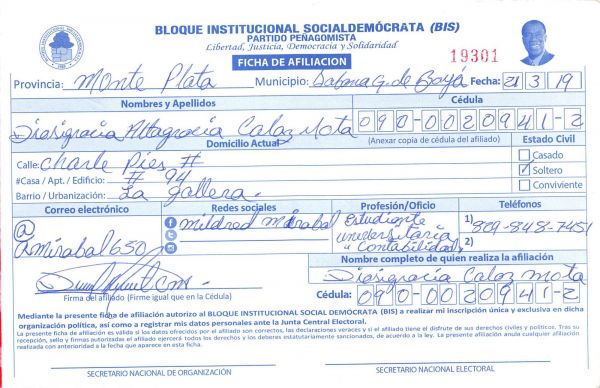 BLOQUE INSTITUCIONAL SOCIALDEMÓCRATA (BIS)
PARTIDO PEÑAGOMISTA
Libertad, Justicia, Democracia y Solidaridad
FICHA DE AFILIACION
19301
Provincia: Monte Plata Municipio: Sabana G. de Boyá Fecha: 21 3 19
Nombres y Apellidos Cédula
Diosigracia Altagracia Calaz Mota 090-0020941-2
Domicilio Actual (Anexar copia de cédula del afiliado) Estado Civil
Calle: Charle Pies # Casado
#Casa / Apt. / Edificio: # 94 Soltero
Barrio / Urbanización: La gallera. Conviviente
Correo electrónico Redes sociales Profesión/Oficio Teléfonos
@ mildred Mirabal Estudiante 1) 809-848-7451
Amirabal650 universitaria 2)
Contabilidad
Nombre completo de quien realiza la afiliación
Diosigracia Calaz Mota
Firma del afiliado (Firme igual que en la Cédula) Cédula: 090-0020941-2
Mediante la presente ficha de afiliación autorizo al BLOQUE INSTITUCIONAL SOCIAL DEMÓCRATA (BIS) a realizar mi inscripción única y exclusiva en dicha
organización política, así como a registrar mis datos personales ante la Junta Central Electoral.
La presente ficha de afiliación es válida si los datos ofrecidos por el afiliado son correctos, las declaraciones veraces y si el afiliado tiene el disfrute de sus derechos civiles y políticos. Tras su
recepción, sello y firmas autorizadas el afiliado ejercerá todos los derechos y los deberes estatutariamente sancionados, de acuerdo a la ley. La presente afiliación anula cualquier afiliación
realizada con anterioridad a la fecha que aparece en esta ficha.
SECRETARIO NACIONAL DE ORGANIZACIÓN SECRETARIO NACIONAL ELECTORAL